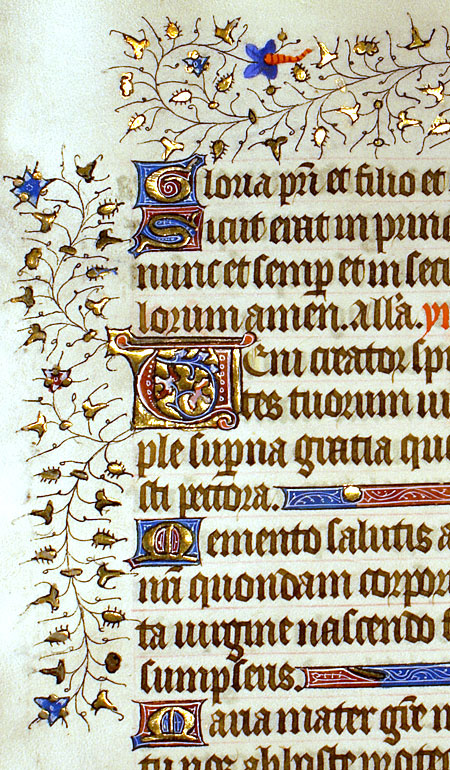 Gloria pr̄i et filio et
Sicut erat in princ
nunc et semp̄ et in secu
lorum amen. All'a. ym
Veni creator spi
tes tuorum ui
ple sup̄na gratia que
sti pectora.
Memento salutis a
nr̄i quondam corpor
ta uirgine nascendo f
sumpseris.
Maria mater gr̄e m
tu nos ab hoste prote